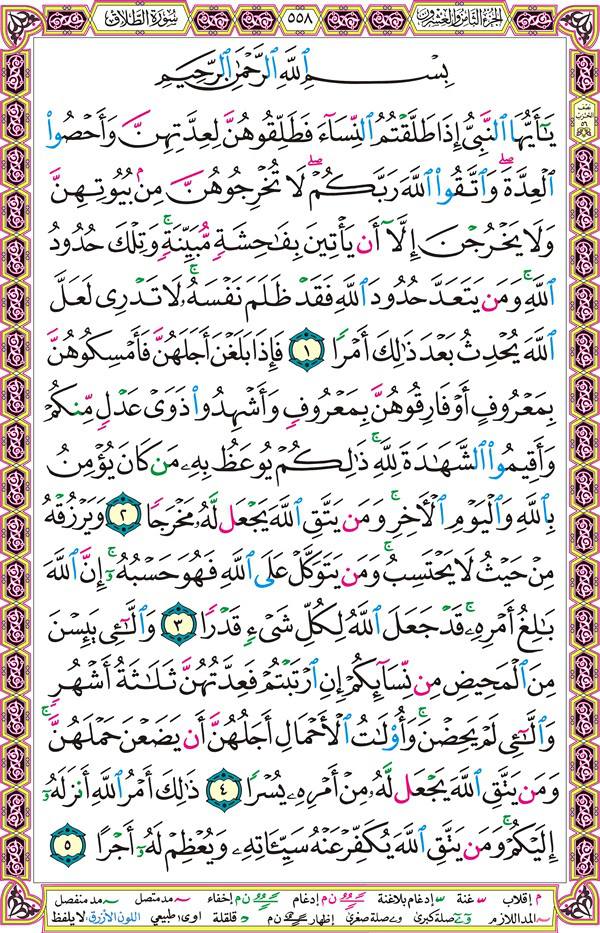 الجزء الثامن والعشرون
٥٥٨
سورة الطلاق
بِسْمِ ٱللَّهِ ٱلرَّحْمَٰنِ ٱلرَّحِيمِ
يَٰٓأَيُّهَا ٱلنَّبِىُّ إِذَا طَلَّقْتُمُ ٱلنِّسَآءَ فَطَلِّقُوهُنَّ لِعِدَّتِهِنَّ وَأَحْصُوا۟
ٱلْعِدَّةَ ۖ وَٱتَّقُوا۟ ٱللَّهَ رَبَّكُمْ ۖ لَا تُخْرِجُوهُنَّ مِنۢ بُيُوتِهِنَّ
وَلَا يَخْرُجْنَ إِلَّآ أَن يَأْتِينَ بِفَٰحِشَةٍ مُّبَيِّنَةٍ ۚ وَتِلْكَ حُدُودُ
ٱللَّهِ ۚ وَمَن يَتَعَدَّ حُدُودَ ٱللَّهِ فَقَدْ ظَلَمَ نَفْسَهُۥ ۚ لَا تَدْرِى لَعَلَّ
ٱللَّهَ يُحْدِثُ بَعْدَ ذَٰلِكَ أَمْرًا ١ فَإِذَا بَلَغْنَ أَجَلَهُنَّ فَأَمْسِكُوهُنَّ
بِمَعْرُوفٍ أَوْ فَارِقُوهُنَّ بِمَعْرُوفٍ وَأَشْهِدُوا۟ ذَوَىْ عَدْلٍ مِّنكُمْ
وَأَقِيمُوا۟ ٱلشَّهَٰدَةَ لِلَّهِ ۚ ذَٰلِكُمْ يُوعَظُ بِهِۦ مَن كَانَ يُؤْمِنُ
بِٱللَّهِ وَٱلْيَوْمِ ٱلْأٓخِرِ ۚ وَمَن يَتَّقِ ٱللَّهَ يَجْعَل لَّهُۥ مَخْرَجًا ٢ وَيَرْزُقْهُ
مِنْ حَيْثُ لَا يَحْتَسِبُ ۚ وَمَن يَتَوَكَّلْ عَلَى ٱللَّهِ فَهُوَ حَسْبُهُۥٓ ۚ إِنَّ ٱللَّهَ
بَٰلِغُ أَمْرِهِۦ ۚ قَدْ جَعَلَ ٱللَّهُ لِكُلِّ شَىْءٍ قَدْرًا ٣ وَٱلَّٰٓـِٔى يَئِسْنَ
مِنَ ٱلْمَحِيضِ مِن نِّسَآئِكُمْ إِنِ ٱرْتَبْتُمْ فَعِدَّتُهُنَّ ثَلَٰثَةُ أَشْهُرٍ
وَٱلَّٰٓـِٔى لَمْ يَحِضْنَ ۚ وَأُو۟لَٰتُ ٱلْأَحْمَالِ أَجَلُهُنَّ أَن يَضَعْنَ حَمْلَهُنَّ ۚ
وَمَن يَتَّقِ ٱللَّهَ يَجْعَل لَّهُۥ مِنْ أَمْرِهِۦ يُسْرًا ٤ ذَٰلِكَ أَمْرُ ٱللَّهِ أَنزَلَهُۥٓ
إِلَيْكُمْ ۚ وَمَن يَتَّقِ ٱللَّهَ يُكَفِّرْ عَنْهُ سَيِّـَٔاتِهِۦ وَيُعْظِمْ لَهُۥٓ أَجْرًا ٥
إقلاب غنة إدغام بلاغنة ن م إدغام إخفاء مد متصل مد منفصل
المد اللازم صلة كبرى صلة صغرى إظهار ن م قلقلة اوى طبيعي اللون الأزرق: لا يلفظ